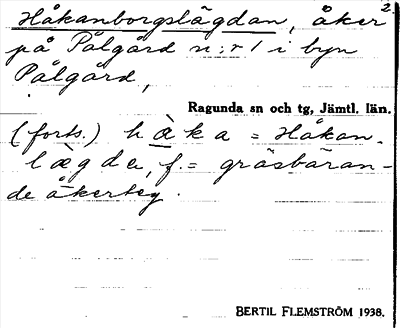 2.
Håkanborgslägdan, åker
på Pålgård n:r 1 i byn
Pålgård,
Ragunda sn och tg, Jämtl. län.
(forts.) hàka = Håkan.
lægda, f. = gräsbäran-
de åkerteg.
BERTIL FLEMSTRÖM 1938.